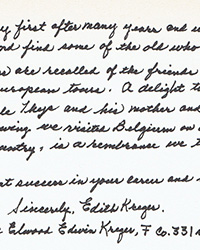 y first after many years and w
ord find some of the old who
e are recalled of the friends
uropean tours. A delight to
le Ikeys and his mother and
wing we visited Belgium on a
ountry, is a remembrance we t
at success in your career and
Sincerely, Edith Kreger.
Elwood Edwin Kreger, F Co. 331